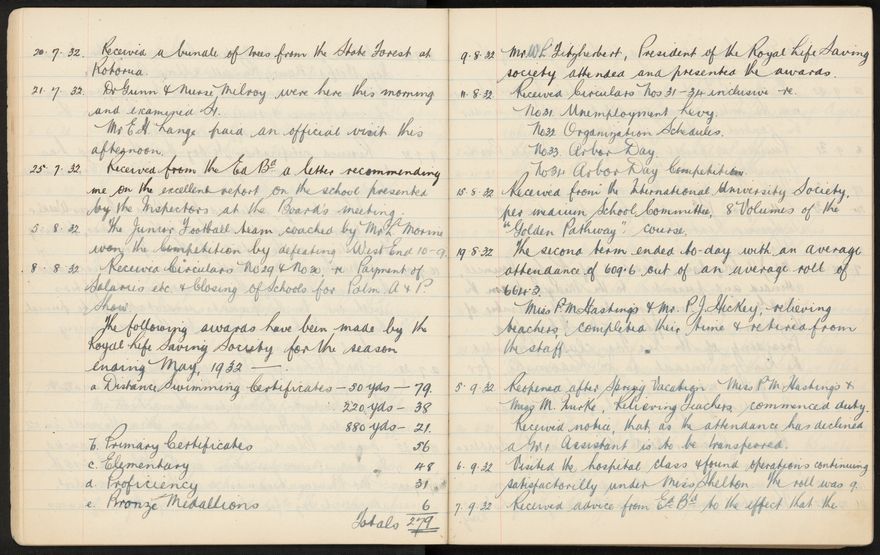 20.7.32. Received a bundle of trees from the State Forest at
Rotorua.
21.7.32. Dr Gunn & Nurse Milroy were here this morning
and examined
Mr E.H. Lange paid an official visit this
afternoon.
25.7.32. Received from the Ed Bd a letter recommending
me on the excellent report on the school presented
by the Inspectors at the Board's meeting.
5.8.32 The Junior Football team coached by Mr
won the Competition by defeating West End 10-9.
8.8.32 Received Circulars No 29 & No 30 re Payment of
Salaries etc & Closing of Schools for Palm. A & P.
Show.
The following awards have been made by the
Royal Life Saving Society for the season
ending May, 1932 —.
a Distance Swimming Certificates — 50 yds — 79.
220 yds — 38
880 yds — 21.
b. Primary Certificates 56
c. Elementary 48
d. Proficiency 31
e. Bronze Medallions 6
Totals 279
9.8.32 Mr W.L. Fitzherbert, President of the Royal Life Saving
society attended and presented the awards.
11.8.32 Received Circulars Nos 31-34 inclusive re.
No 31 Unemployment Levy.
No 32 Organization Schedules.
No 33 Arbor Day
No 34 Arbor Day Competition.
15.8.32 Received from the International University Society,
per medium School Committee, 8 Volumes of the
"Golden Pathway" course.
19.8.32 The second term ended to-day with an average
attendance of 609.6 out of an average roll of
664.3.
Miss P.M. Hastings & Mr. P.J. Hickey, relieving
teachers completed their time & retired from
the staff.
5.9.32 Reopened after Spring Vacation Miss P.M. Hastings &
Miss M. Burke, Relieving Teachers, commenced duty.
Received notice, that, as the attendance has declined
a Assistant is to be transferred.
6.9.32 Visited the hospital class & found operations continuing
satisfactorily under Miss Shelton. The roll was 9.
7.9.32 Received advice from Ed Bd to the effect that the